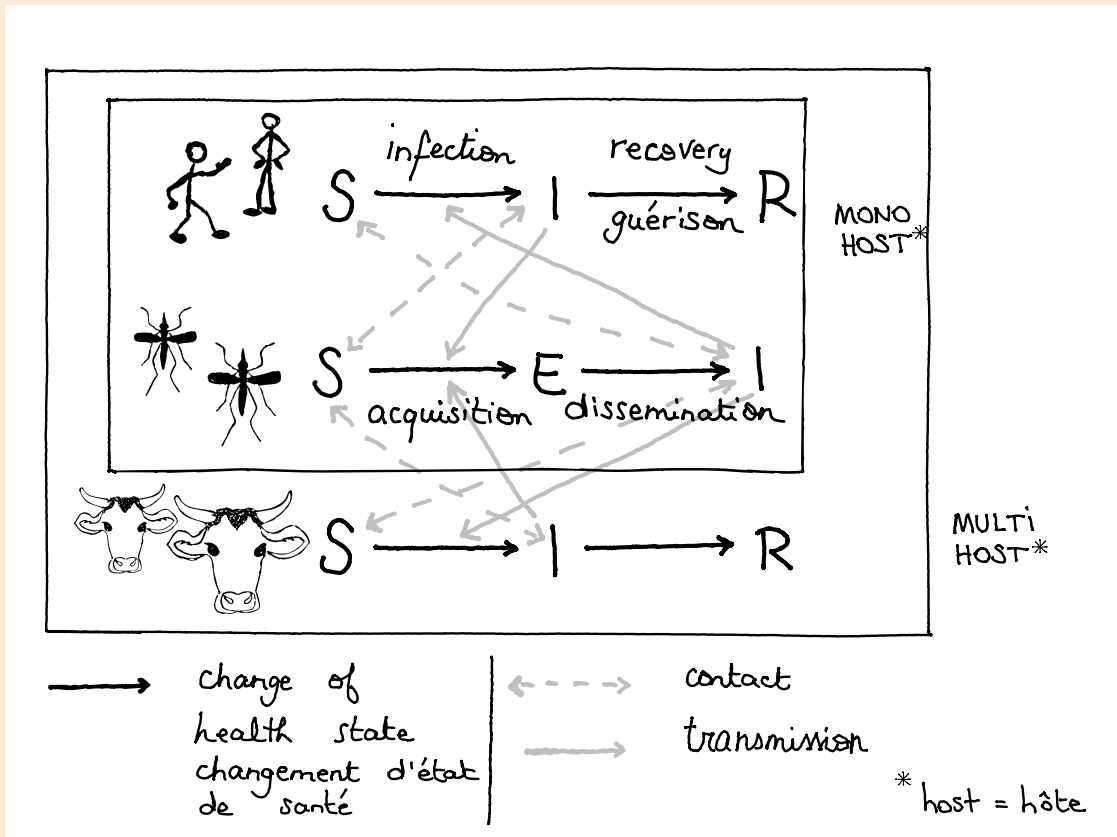 infection
recovery
S
I
R
guérison
MONO
HOST*
S
E
I
acquisition
dissemination
S
I
R
MULTI
HOST*
change of
health state
changement d'état
de santé
contact
transmission
* host = hôte